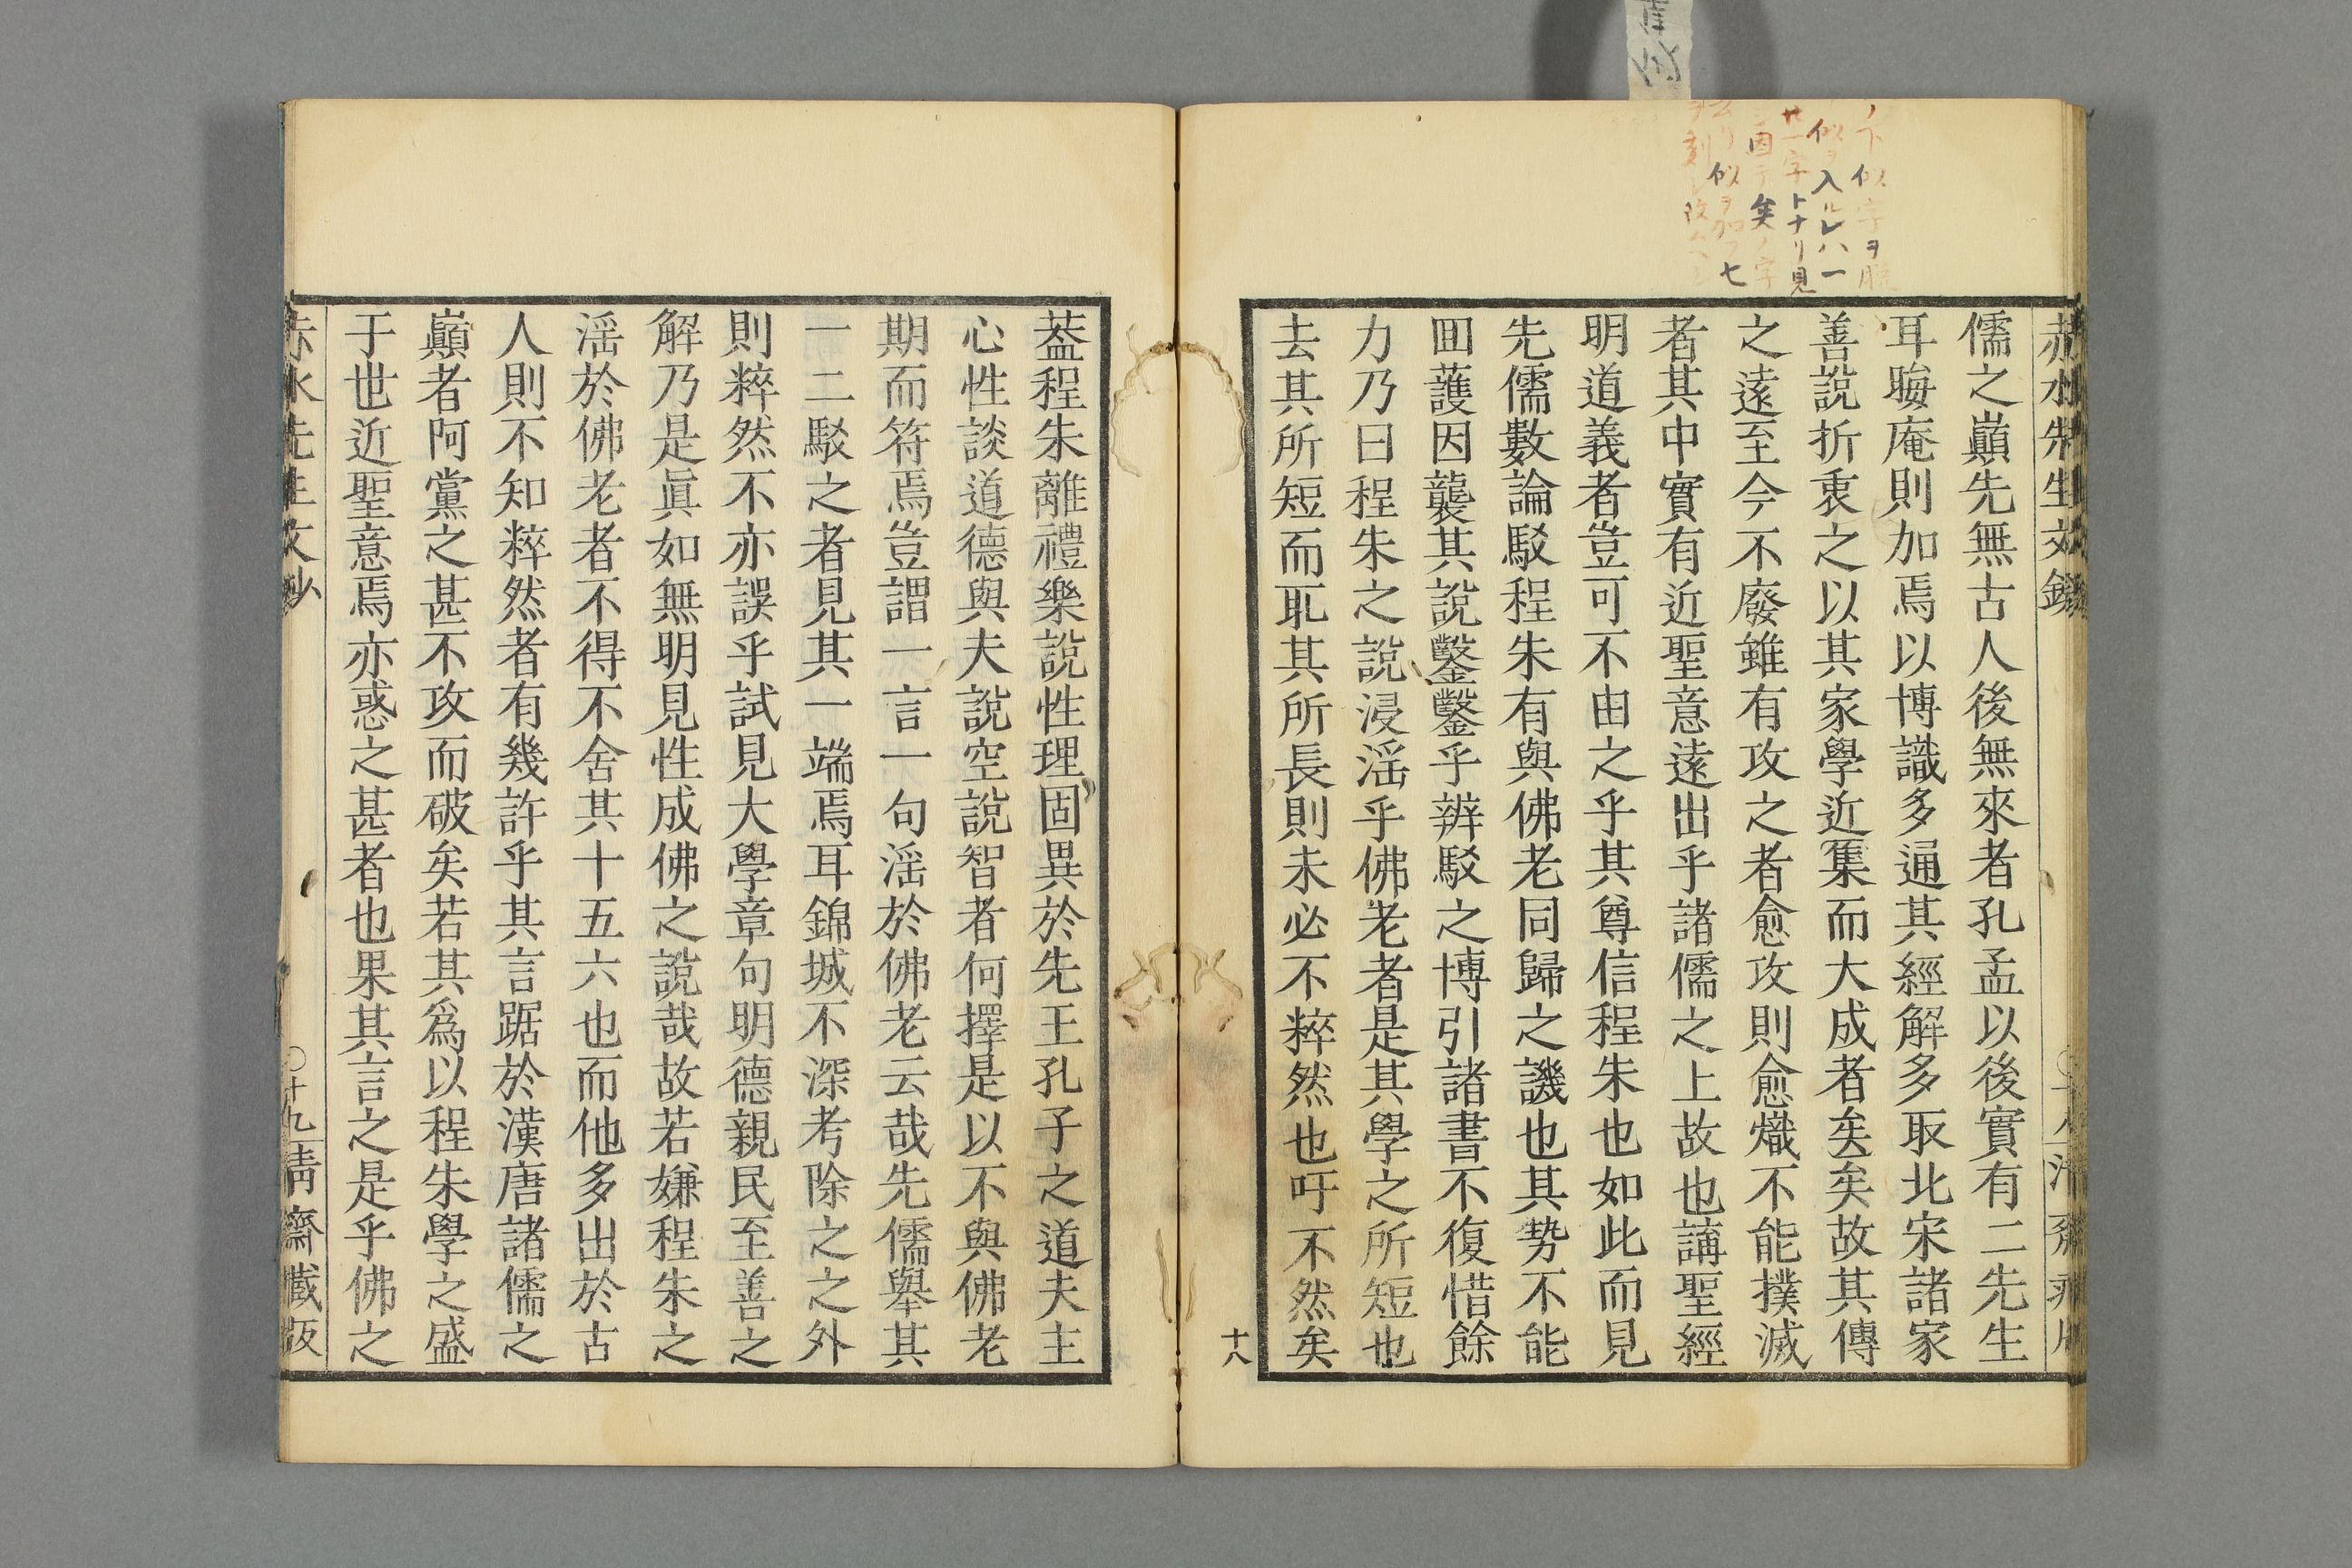 赤水先生文鈔
儒之巓先無古人後無來者孔孟以後實有二先生
耳晦庵則加焉以博識多通其經解多取北宋諸家
善說折衷之以其家學近集而大成者矣矣故其傳
之遠至今不廢雖有攻之者愈攻則愈熾不能撲滅
者其中實有近聖意遠出乎諸儒之上故也講聖經
明道義者豈可不由之乎其尊信程朱也如此而見
先儒數論駁程朱有與佛老同歸之譏也其勢不能
回護因襲其說鑿鑿乎辨駁之博引諸書不復惜餘
力乃曰程朱之說浸淫乎佛老者是其學之所短也
去其所短而取其所長則未必不粹然也吁不然矣
十八
葢程朱離禮樂說性理固異於先王孔子之道夫主
心性談道德與夫說空說智者何擇是以不與佛老
期而符焉豈謂一言一句淫於佛老云哉先儒舉其
一二駁之者見其一端焉耳錦城不深考除之之外
則粹然不亦誤乎試見大學章句明德親民至善之
解乃是眞如無明見性成佛之說哉故若嫌程朱之
淫於佛老者不得不舍其十五六也而他多出於古
人則不知粹然者有幾許乎其言踞於漢唐諸儒之
巓者阿黨之甚不攻而破矣若其爲以程朱學之盛
于世近聖意焉亦惑之甚者也果其言之是乎佛之
赤水先生文鈔 〇十九 靜齋藏版